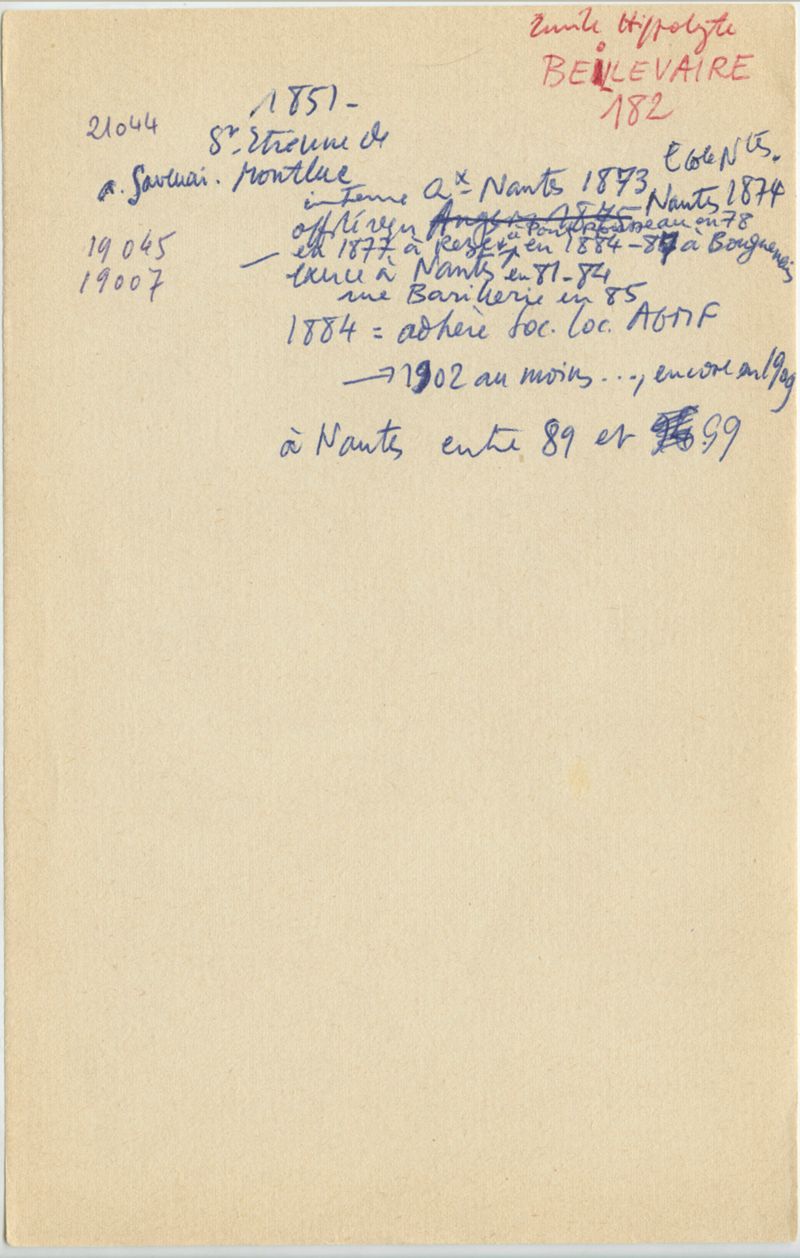 Emile Hippolyte
BEILLEVAIRE
182
1851 -
21044
St Etienne de
a. Savenai. Montluc
Ecole Ntes.
interne ax Nantes 1873
off reçu Angers 1875 Nantes 1874
à Pont Rousseau en 78
19045
— en 1877 à Rezé, en 1884-87 à Bouguenais
19007
exerce à Nantes en 81-84
rue Barillerie en 85
1884 = adhère Soc. loc. AGMF
→ 1902 au moins ..., encore en 1909
à Nantes entre 89 et 99